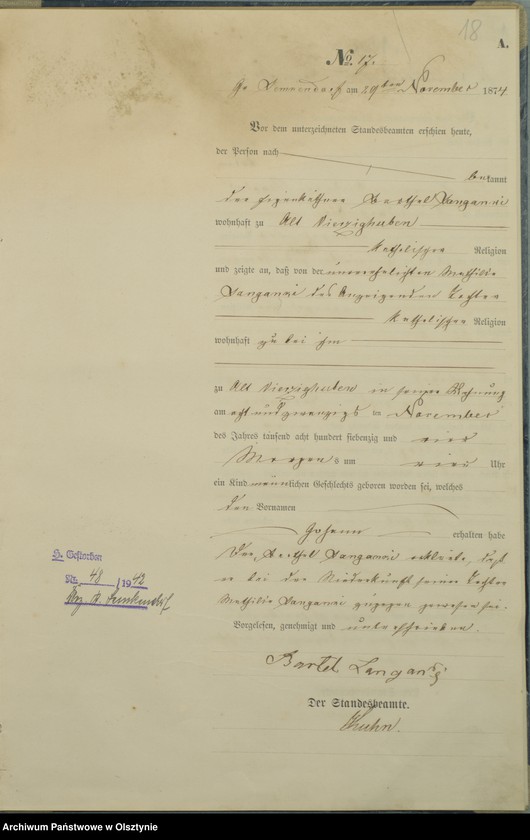 18
A.
No. 17.
Gr. Lemkendorf am 29ten November 1874
Vor dem unterzeichneten Standesbeamten erschien heute,
der Person nach
bekannt
der Eigenkäthner Barthel Langanki
wohnhaft zu Alt Vierzighuben
katholischer Religion
und zeigte an, daß von der unverehelichten Mathilde
Langanki des Anzeigenden Tochter
katholischer Religion
wohnhaft zu bei ihm
zu Alt Vierzighuben in seiner Wohnung
am acht und zwanzigs ten November
des Jahres tausend acht hundert siebenzig und vier
Morgens um vier Uhr
ein Kind männlichen Geschlechts geboren worden sei, welches
den Vornamen
Johann erhalten habe
Der Barthel Langanki erklärte, daß
er bei der Niederkunft seiner Tochter
Mathilde Langanki zugegen gewesen sei.
Vorgelesen, genehmigt und unterschrieben.
Bartel Langanki
Der Standesbeamte.
Kuhn.
H. Gestorben
Nr. 48 / 1942
Gr. Lemkendorf
Archiwum Państwowe w Olsztynie